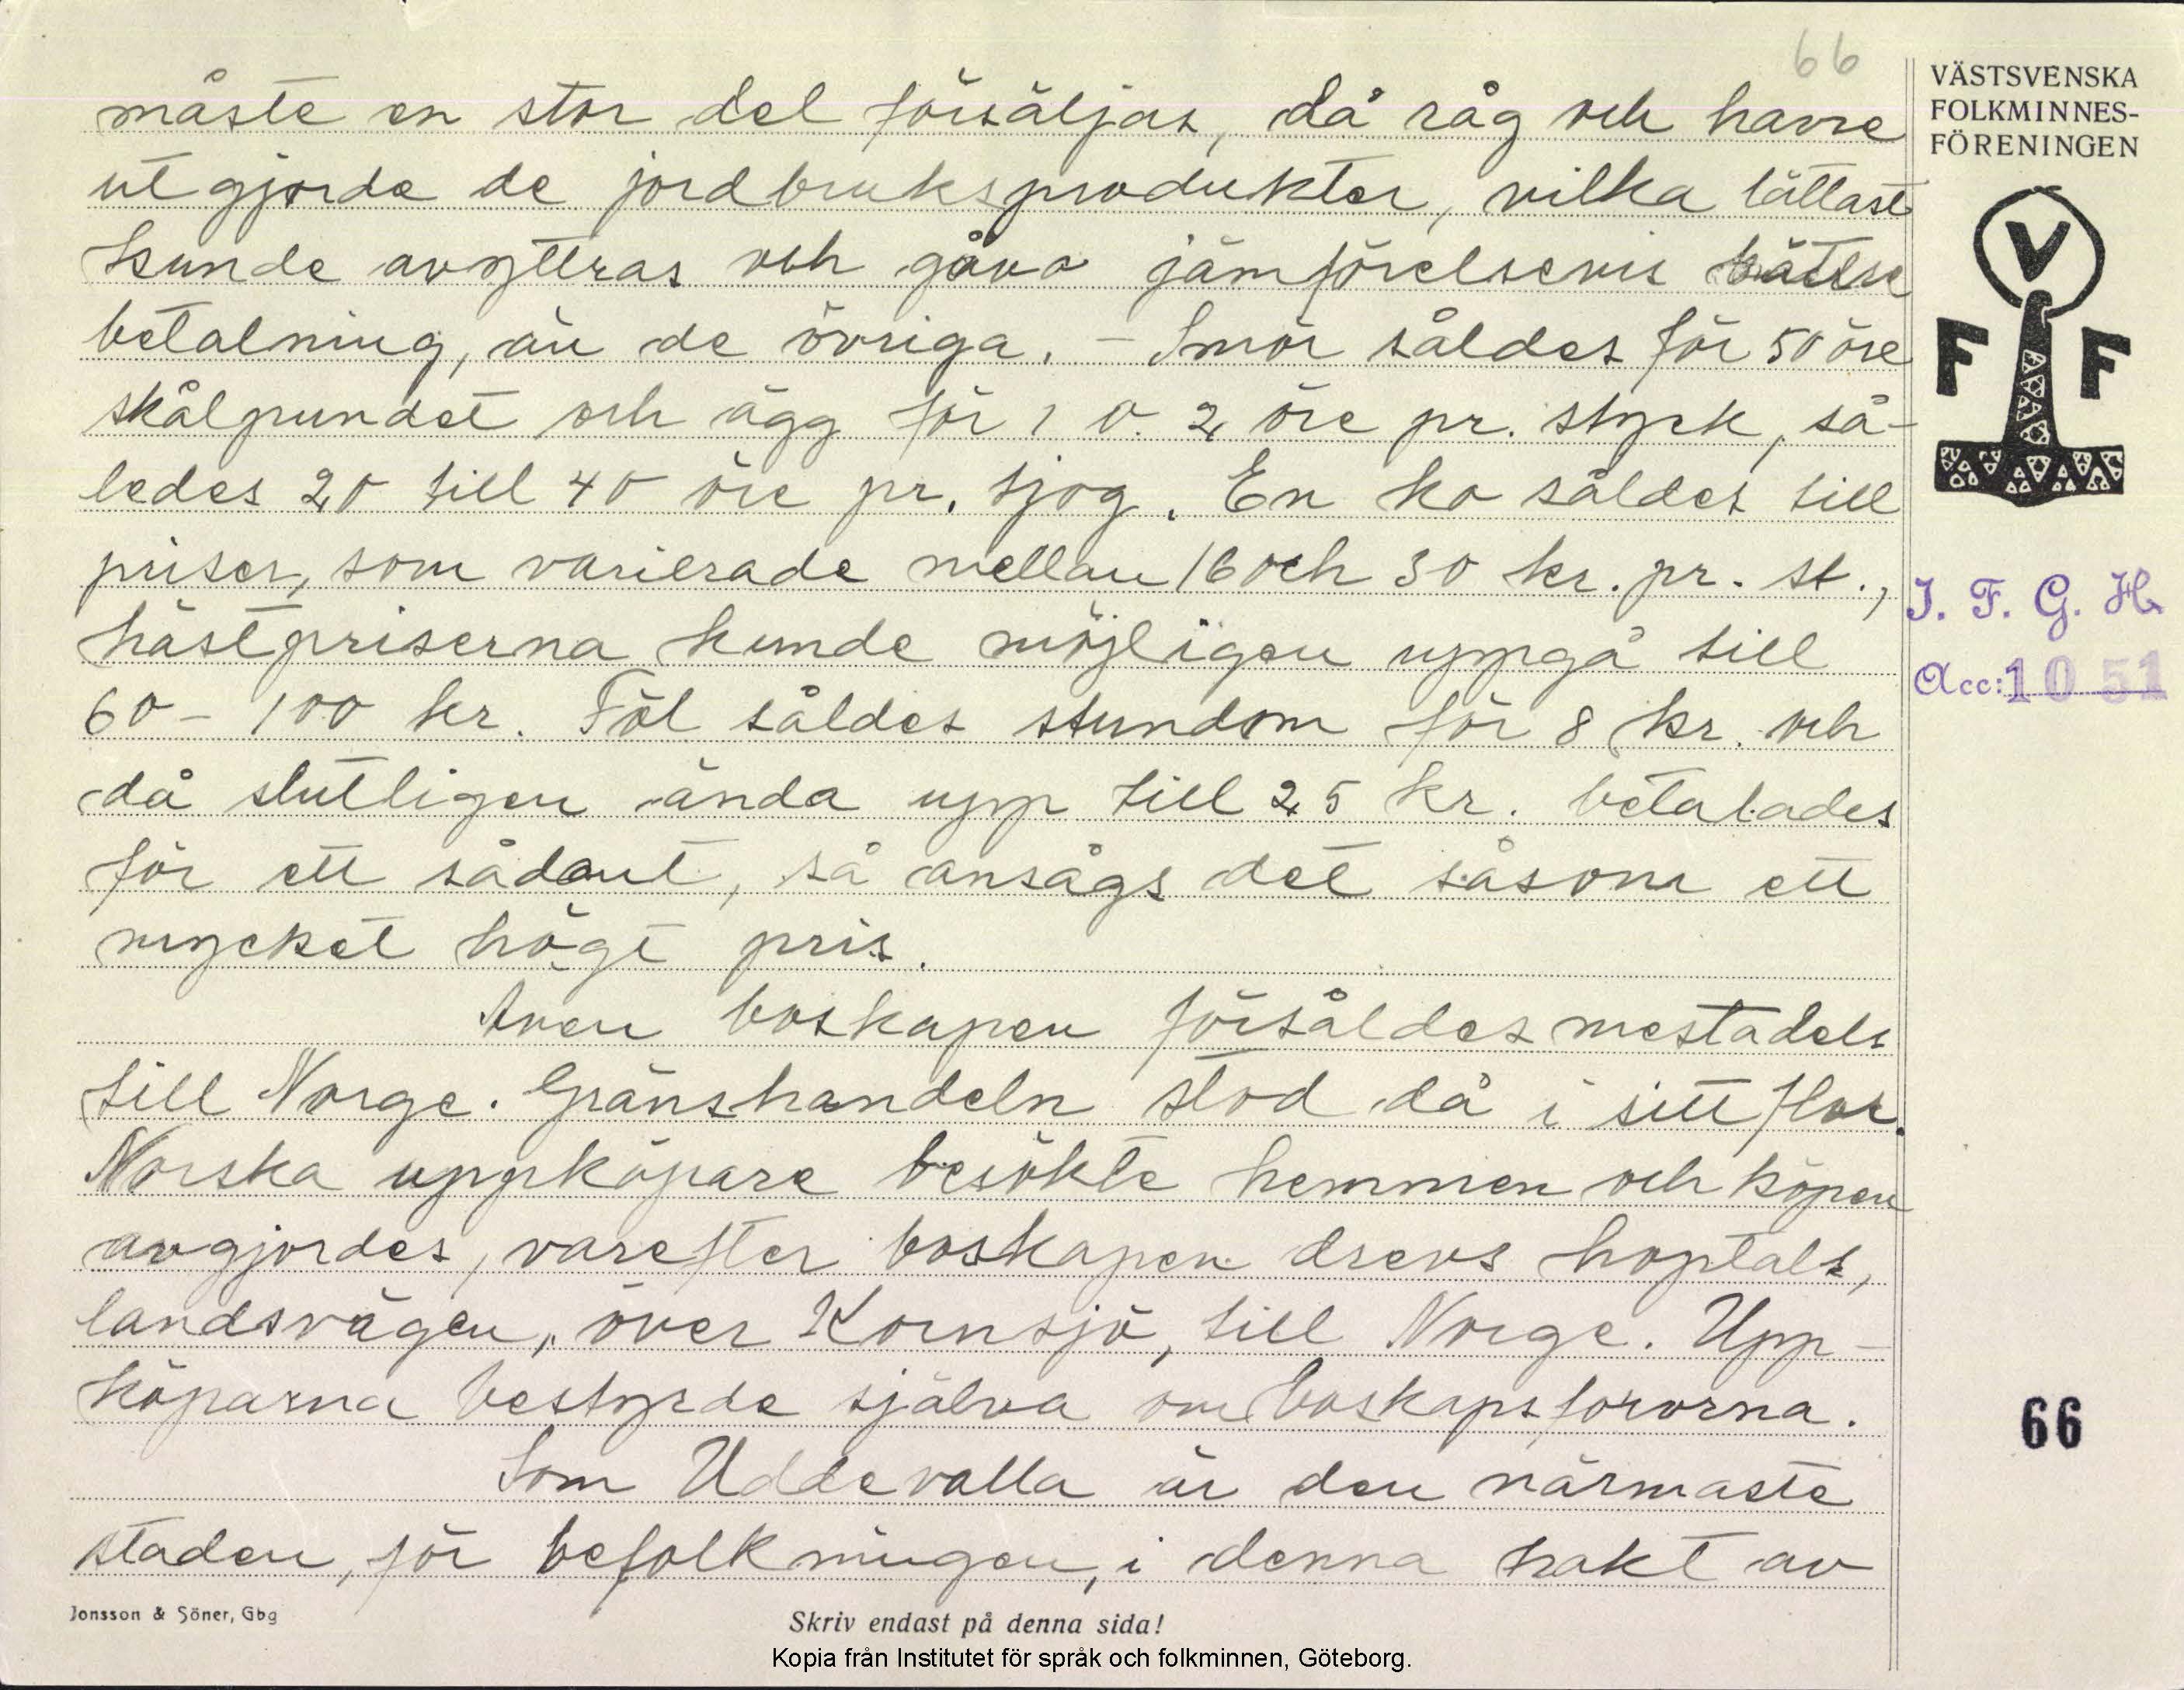 66
måste en stor del försäljas, då råg och havre
utgjorde de jordbruksprodukter, vilka lättast
kunde avyttras och gåvo jämförelsevis bättre
betalning, än de övriga. – Smör såldes för 50 öre
skålpundet och ägg för 1 o. 2 öre pr. styck, så-
ledes 20 till 40 öre pr. tjog. En ko såldes till
priser, som varierade mellan 16 och 30 kr. pr. st.,
hästpriserna kunde möjligen uppgå till
60 – 100 kr. Föl såldes stundom för 8 kr. och
då slutligen ända upp till 25 kr. betalades
för ett sådant, så ansågs det såsom ett
mycket högt pris.
Även boskapen försåldes mestadels
till Norge. Gränshandeln stod då i sitt flor.
Norska uppköpare besökte hemmen och köpen
avgjordes, varefter boskapen drevs hoptals,
landsvägen, över Kornsjö, till Norge. Upp-
köparna bestyrde själva om boskapsfororna.
Som Uddevalla är den närmaste
staden, för befolkningen, i denna trakt av
VÄSTSVENSKA
FOLKMINNES-
FÖRENINGEN
V
F F
I. F. G. H.
Acc: 1051
66
Jonsson & Söner, Gbg
Skriv endast på denna sida!
Kopia från Institutet för språk och folkminnen, Göteborg.